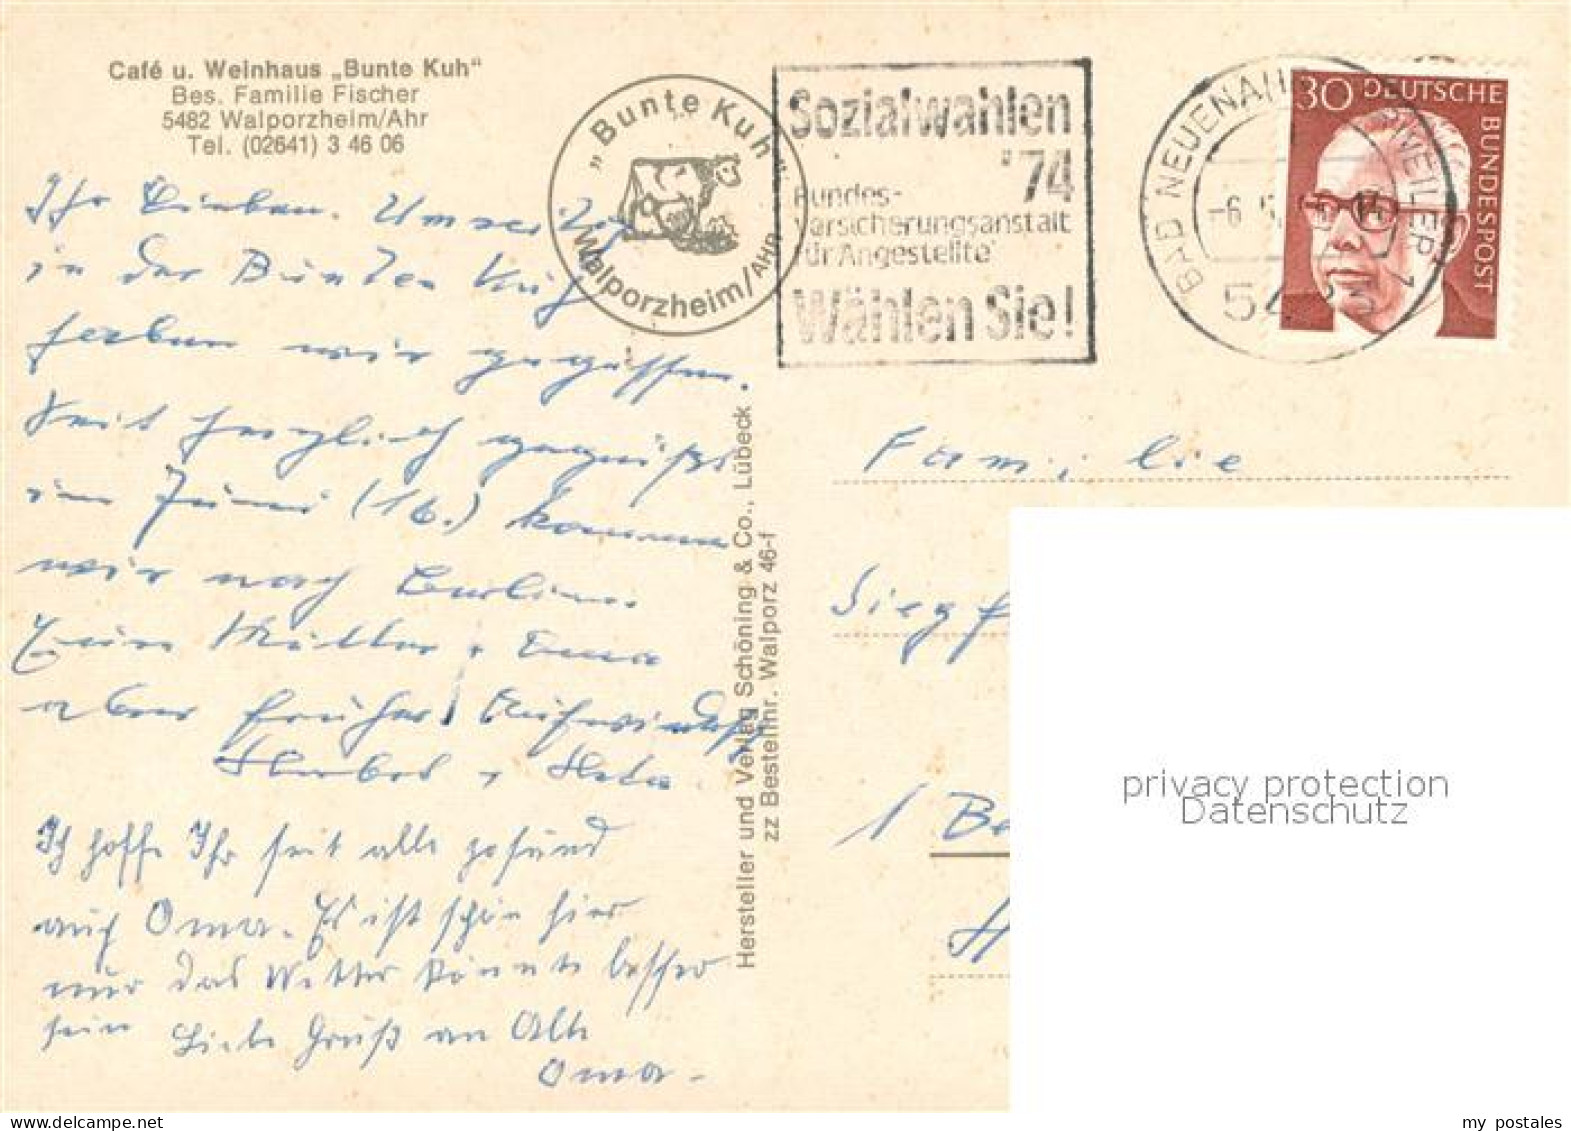 Café u. Weinhaus „Bunte Kuh"
Bes. Familie Fischer
5482 Walporzheim/Ahr
Tel. (02641) 3 46 06
„Bunte Kuh"
Walporzheim/Ahr
Sozialwahlen
'74
Bundes-
versicherungsanstalt
für Angestellte
Wählen Sie!
BAD NEUENAHR
WEILER 1
-6.
30 DEUTSCHE
BUNDESPOST
Ihr Lieben.
in der Bunten Kuh
haben wir gegessen.
Seid herzlich gegrüßt
im Juni (16.) kommen
wir nach Berlin.
Mutter + Oma
aber früher
Ich hoffe Ihr seit alle gesund
auch Oma. Es ist schön hier
nur das Wetter könnte besser
sein Liebe Grüß an Alle
Oma -
Hersteller und Verlag Schöning & Co., Lübeck
zz Bestellnr. Walporz 46-f
Familie
Siegf
1 Be
H
privacy protection
Datenschutz
my postales